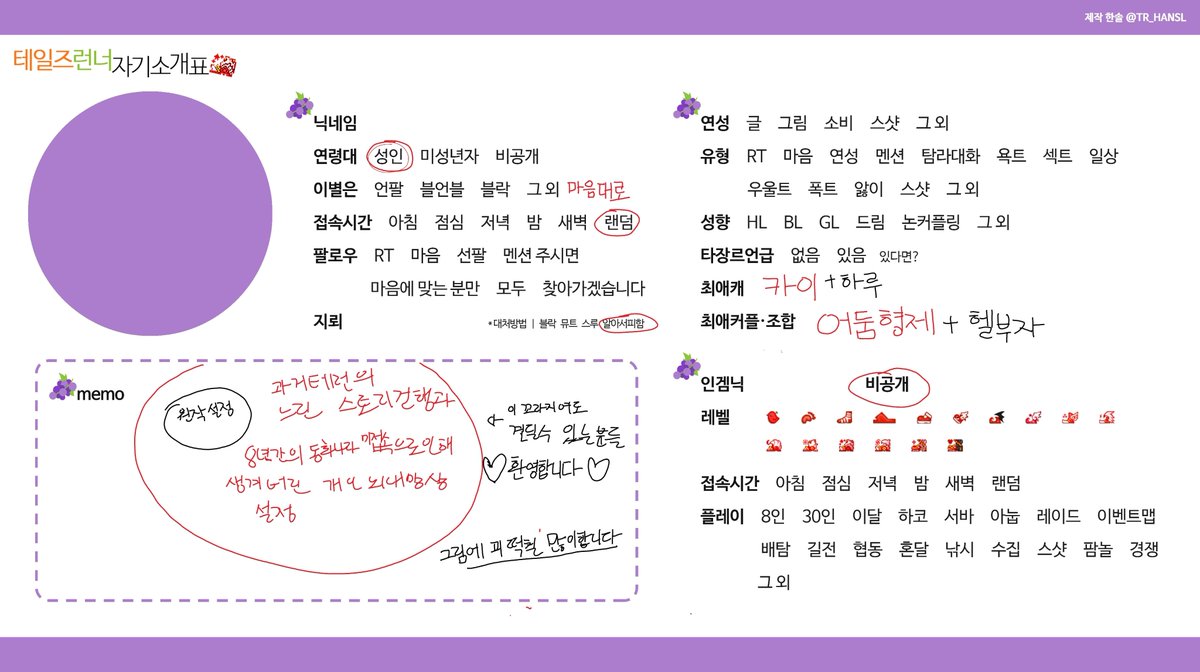 제작 한솔 @TR_HANSL
테일즈런너자기소개표
닉네임
연령대 성인 미성년자 비공개
이별은 언팔 블언블 블락 그 외 마음대로
접속시간 아침 점심 저녁 밤 새벽 랜덤
팔로우 RT 마음 선팔 멘션 주시면
마음에 맞는 분만 모두 찾아가겠습니다
지뢰 *대처방법 | 블락 뮤트 스루 알아서피함
연성 글 그림 소비 스샷 그 외
유형 RT 마음 연성 멘션 탐라대화 욕트 섹트 일상
우울트 폭트 앓이 스샷 그 외
성향 HL BL GL 드림 논커플링 그 외
타장르언급 없음 있음 있다면?
최애캐 카이 + 하루
최애커플·조합 어둠형제 + 헬부자
memo
원작 설정
과거테런의
느린 스토리진행과
8년간의 동화나라 미접속으로인해
생겨버린 개인 뇌내망상
설정
← 이 꼬라지여도
견딜수 있는분들
♡환영합니다♡
그림에 피 떡칠 많이합니다
인겜닉 비공개
레벨
접속시간 아침 점심 저녁 밤 새벽 랜덤
플레이 8인 30인 이달 하코 서바 아눕 레이드 이벤트맵
배탐 길전 협동 혼달 낚시 수집 스샷 팜놀 경쟁
그 외